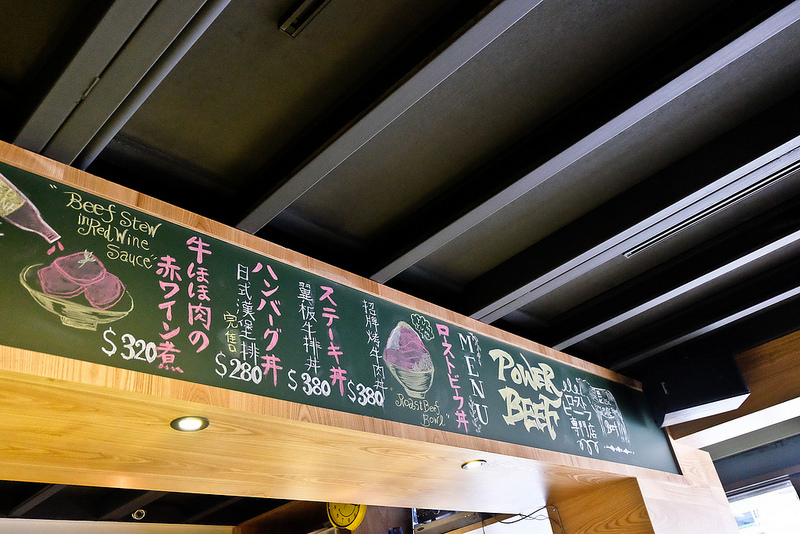 POWER
BEEF
ロースト
ビーフ
専門店
MENU
ローストビーフ丼
招牌烤牛肉丼
$380
"Roast Beef
Bowl"
ステーキ丼
翼板牛排丼
$380
ハンバーグ丼
日式漢堡排
完售
$280
牛ほほ肉の
赤ワイン煮
$320
"Beef Stew
in Red Wine
Sauce"